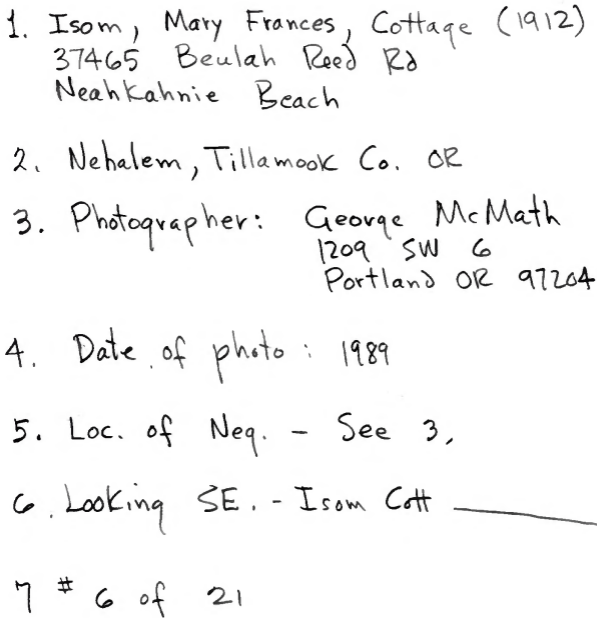 1. Isom, Mary Frances, Cottage (1912)
37465 Beulah Reed Rd
Neahkahnie Beach
2. Nehalem, Tillamook Co. OR
3. Photographer: George McMath
1209 SW 6
Portland OR 97204
4. Date of photo: 1989
5. Loc. of Neg. - See 3.
6. Looking SE. - Isom Cott
7 # 6 of 21